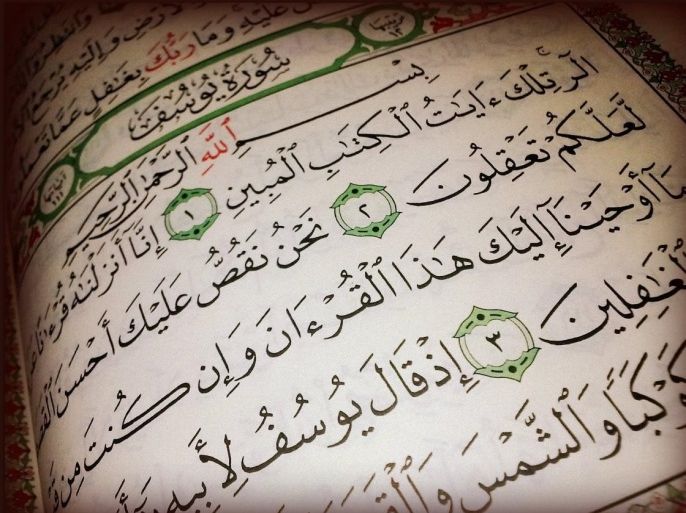 وَإِلَيْهِ يُرْجَعُ
عَلَيْهِ وَمَا رَبُّكَ بِغَٰفِلٍ عَمَّا
ترتيبها ١٢
سُورَةُ يُوسُفَ
آياتها ١١١
بِسْمِ ٱللَّهِ ٱلرَّحْمَٰنِ ٱلرَّحِيمِ
الٓر تِلْكَ ءَايَٰتُ ٱلْكِتَٰبِ ٱلْمُبِينِ ١ إِنَّآ أَنزَلْنَٰهُ قُرْءَٰنًا
لَّعَلَّكُمْ تَعْقِلُونَ ٢ نَحْنُ نَقُصُّ عَلَيْكَ أَحْسَنَ
مَآ أَوْحَيْنَآ إِلَيْكَ هَٰذَا ٱلْقُرْءَانَ وَإِن كُنتَ مِن
ٱلْغَٰفِلِينَ ٣ إِذْ قَالَ يُوسُفُ لِأَبِيهِ
كَوْكَبًا وَٱلشَّمْسَ